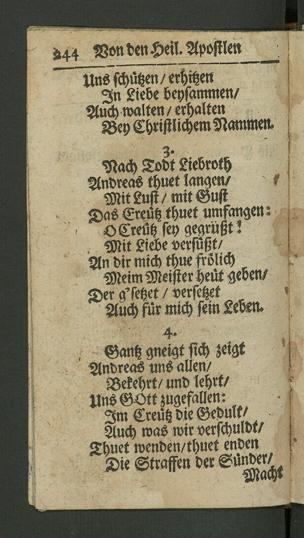 244 Von den Heil. Apostlen
Uns schützen/ erhitzen
In Liebe beysammen/
Auch walten/ erhalten
Bey Christlichem Nammen.
3.
Nach Todt Liebroth
Andreas thuet langen/
Mit Lust/ mit Gust
Das Creütz thuet umfangen:
O Creütz sey gegrüßt!
Mit Liebe versüßt/
An dir mich thue frölich
Meim Meister heüt geben/
Der g'setzet/ versetzet
Auch für mich sein Leben.
4.
Gantz gneigt sich zeigt
Andreas uns allen/
Bekehrt/ und lehrt/
Uns GOtt zugefallen:
Im Creütz die Gedult/
Auch was wir verschuldt/
Thuet wenden/ thuet enden
Die Straffen der Sünder/
Macht